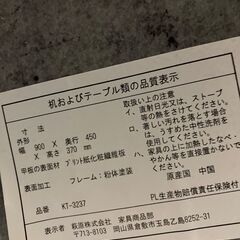 机およびテーブル類の品質表示
寸法
外形
幅 900 × 奥行 450
× 高さ 370 mm
甲板の表面材 プリント紙化粧繊維板
表面加工 フレーム：粉体塗装
品名 KT-3237
表示者 萩原株式会社 家具商品部
〒713-8103 岡山県倉敷市玉島乙島8252-31
取扱い上の注意
イ、直射日光又は、ストーブ
等の熱をさけてください。
ロ、著しい汚れを落とす場合
は、うすめた中性洗剤を
使ってください。
ハ、家具の上に加熱したなべ・
やかん等を直接置かないで
ください。
原産国 中国
PL生産物賠償責任保険付